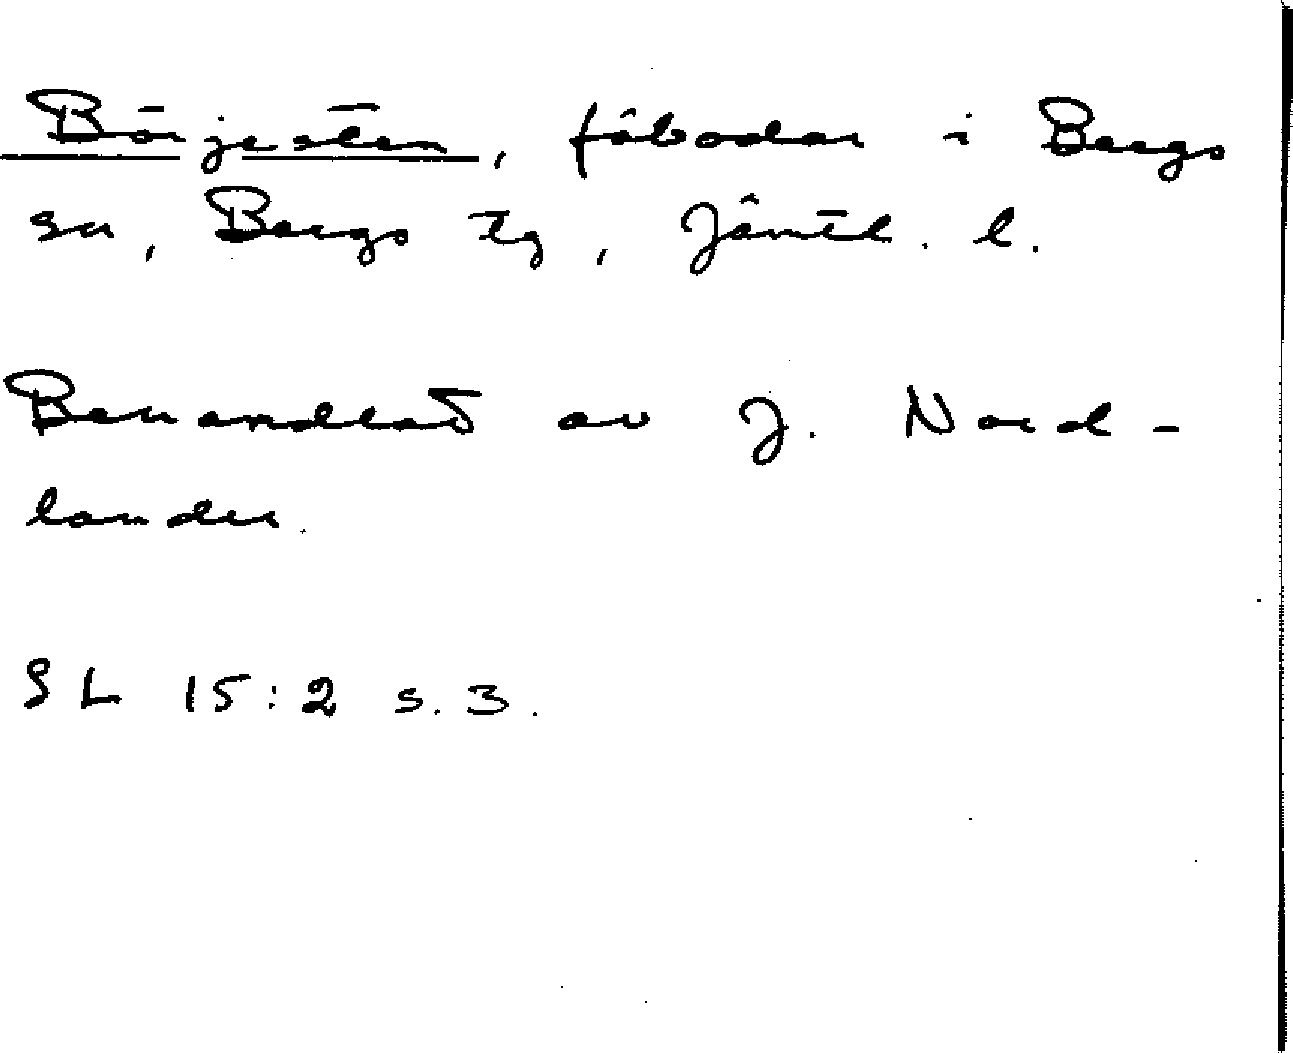 Börjesten, fäbodar i Bergs
sn, Bergs tg, Jämtl. l.
Behandlat av J. Nord-
lander.
SL 15:2 s. 3.